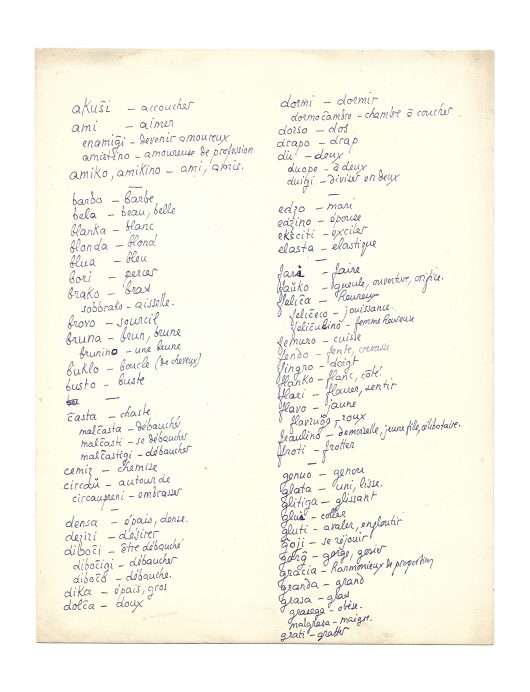 akuŝi – accoucher
ami – aimer
enamiĝi – devenir amoureux
amistino – amoureuse de profession
amiko, amikino – ami, amie.
barbo – barbe
bela – beau, belle
blanka – blanc
blonda – blond
blua – bleu
bori – percer
brako – bras
subbrako – aisselle.
brovo – sourcil
bruna – brun, brune
brunino – une brune
buklo – boucle (de cheveux)
busto – buste
ĉasta – chaste
malĉasta – débauché
malĉasti – se débaucher
malĉastigi – débaucher
ĉemizo – chemise
ĉirkaŭ – autour de
circaupreni – embrasser
densa – épais, dense.
deziri – désirer
diboĉi – être débauché
diboĉigi – débaucher
diboĉo – débauche.
dika – épais, gros
dolĉa – doux
dormi – dormir
dormoĉambro – chambre à coucher
dorso – dos
drapo – drap
du – deux
duope – à deux
duigi – diviser en deux
edzo – mari
edzino – épouse
eksciti – exciter
elasta – élastique
fari – faire
faŭko – gueule, ouverture, orifice.
feliĉa – heureux
feliĉeco – jouissance.
feliĉulino – femme heureuse
femuro – cuisse
fendo – fente, crevasse
fingro – doigt
flanko – flanc, côté
flari – flairer, sentir
flavo – jaune
flavruĝo – roux
fraŭlino – demoiselle, jeune fille, célibataire.
froti – frotter
genuo – genou
glata – uni, lisse.
glitiga – glissant
glui – coller
gluti – avaler, engloutir
ĝoji – se réjouir
gorĝ – gorge, gosier
gracia – harmonieux de proportion
granda – grand
grasa – gras
grasega – obèse.
malgrasa – maigre.
grati – gratter